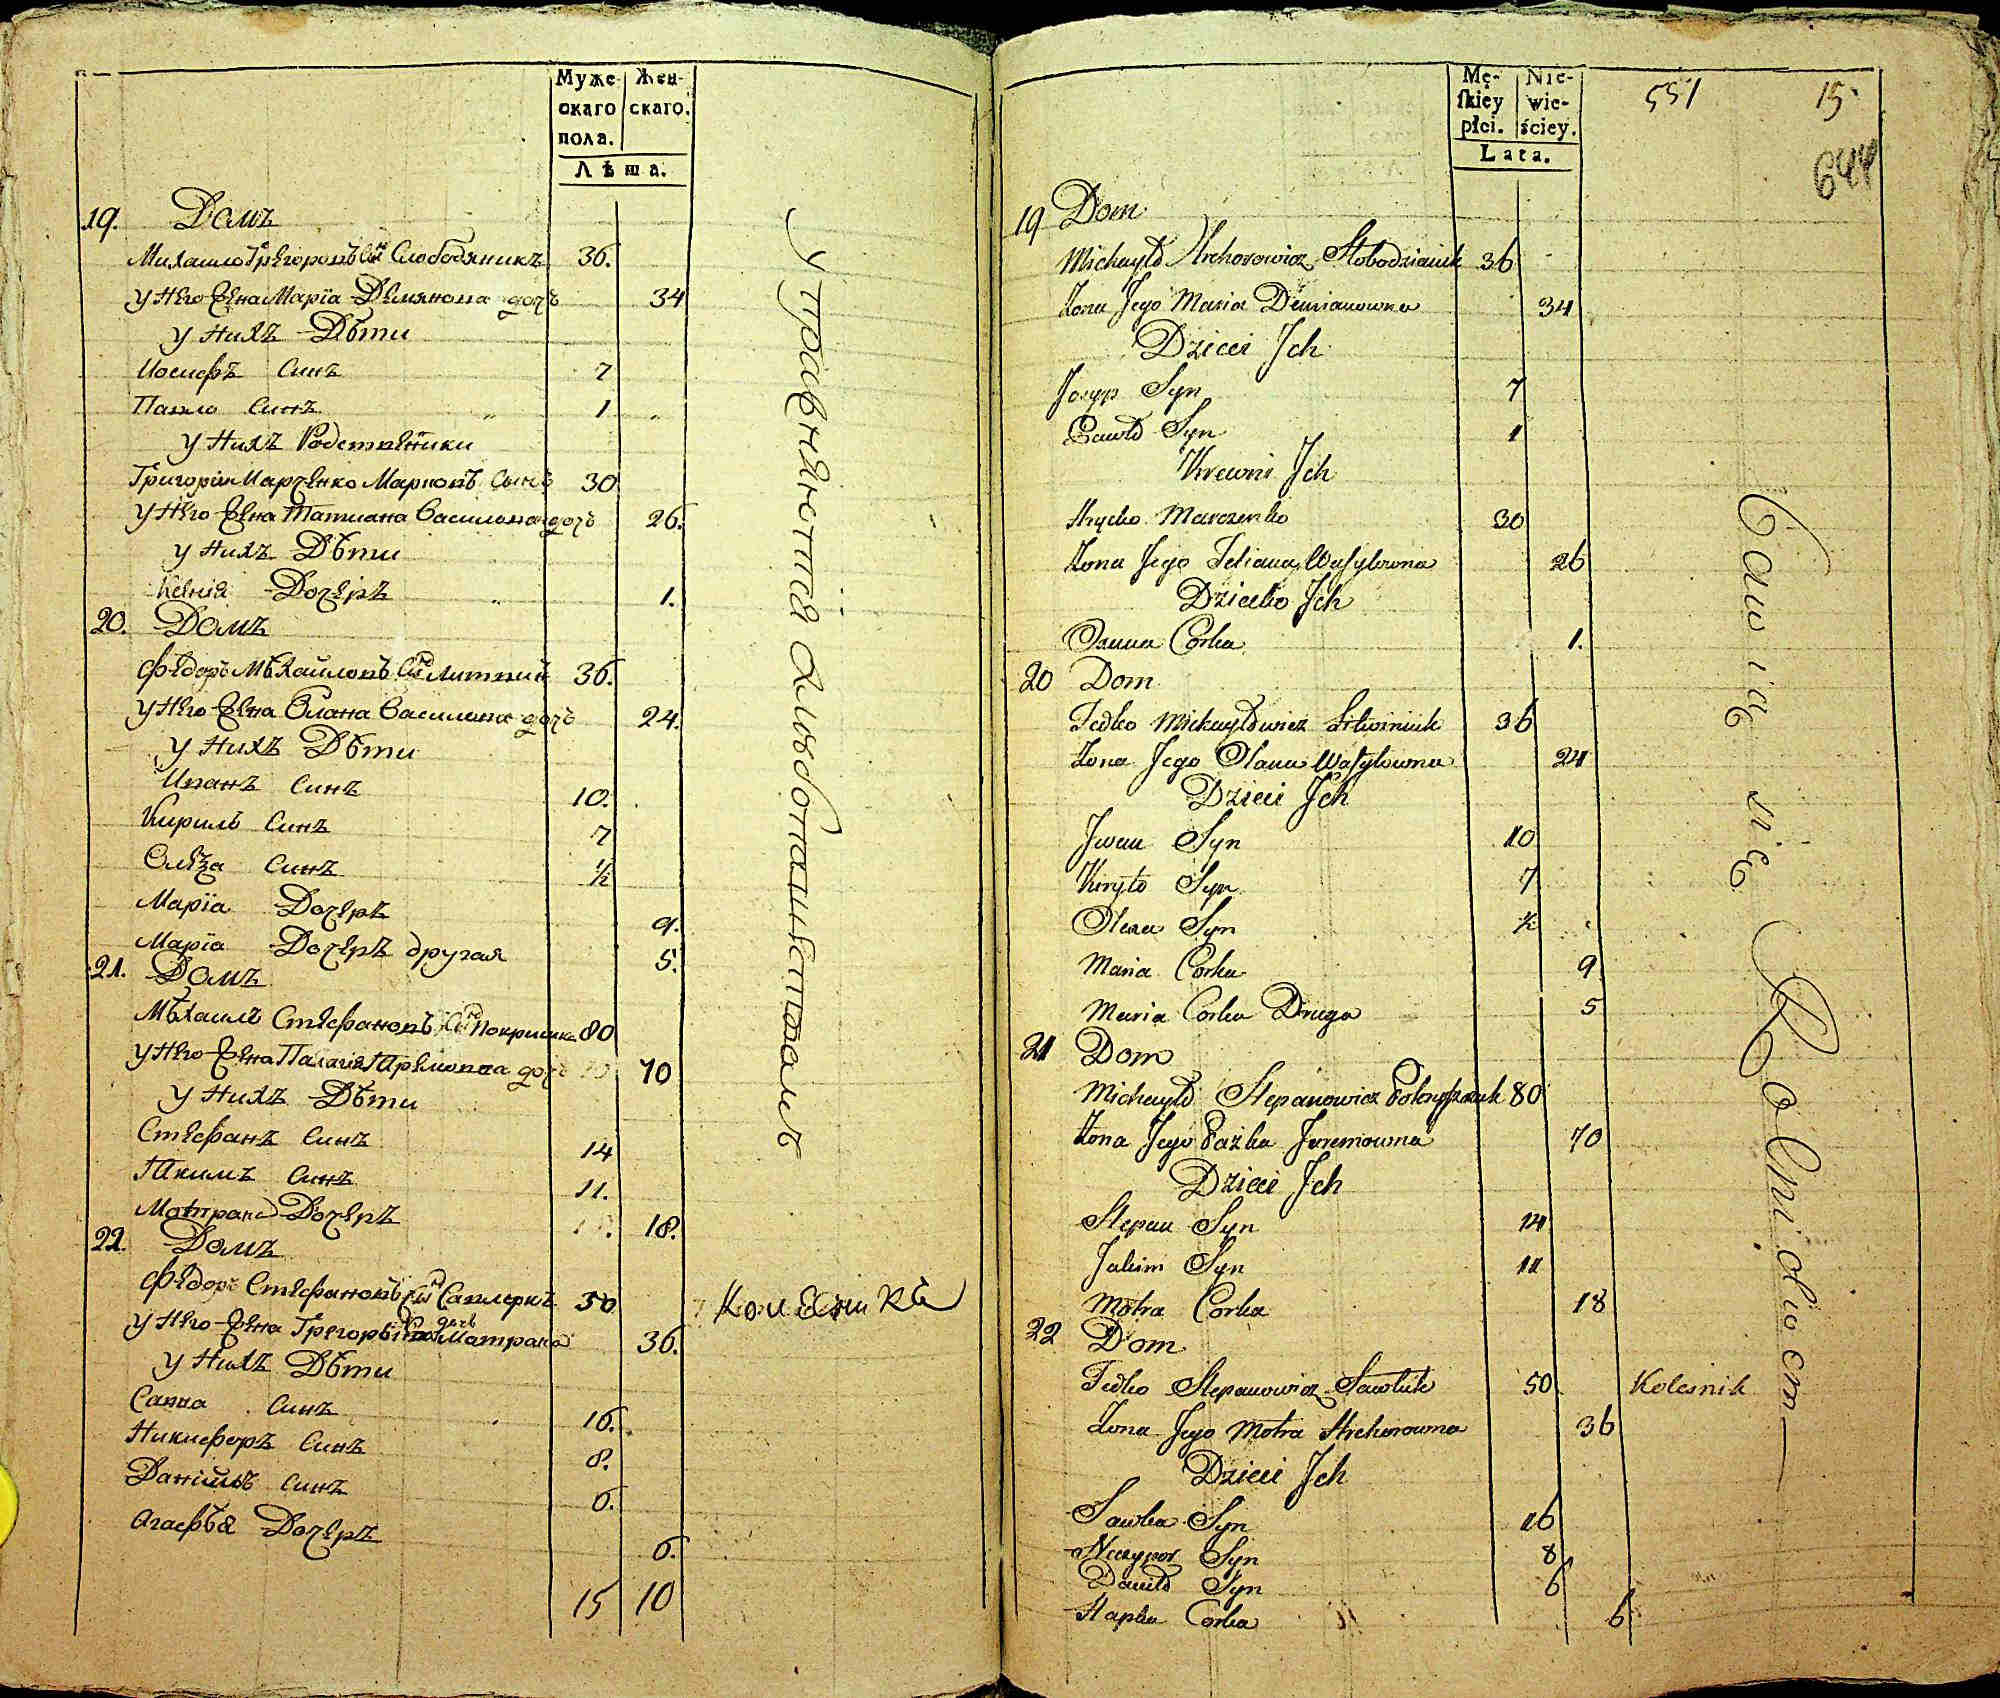 Муже-
скаго
пола.
Жен-
скаго.
Лѣта.
19. Домъ
Михаило Грегоровъ Сынъ Слободяникъ 36.
у Него Жена Марїа Демянова дочъ 34
у Нихъ Дѣти
Иосифъ Синъ 7
Павло Синъ 1
у Нихъ Родственики
Григорій Марченко Марковъ Сынъ 30
у Него Жена Татиана Василова дочъ 26.
у Нихъ Дѣти
Ксенія Дочеръ 1.
20. Домъ
Федоръ Мѣхайловъ Сынъ Литвинъ 36.
у Него Жена Олана Василова дочъ 24.
у Нихъ Дѣти
Иванъ Синъ 10.
Кирилъ Синъ 7
Олеѯа Синъ ½
Марїа Дочеръ 9.
Марїа Дочеръ другая 5.
21. Домъ
Мѣхаилъ Стефановъ Сынъ 80
у Него Жена Палагия Яремова дочъ 70
у Нихъ Дѣти
Стефанъ Синъ 14
Якимъ Синъ 11.
Мотрана Дочеръ 18.
22. Домъ
Федоръ Стефановъ Сынъ 50
у Него Жена Грегорова дочъ Мотрана 36.
у Нихъ Дѣти
Савва Синъ 16.
Никифоръ Синъ 8.
Данїилъ Синъ 6.
Агафѣя Дочеръ 6.
15 10
Упражняются Хлѣбопашествомъ
Колесникъ
Mę-
skiey
płci.
Nie-
wie-
ściey.
Lata.
551 15
644
19 Dom
Michayło Hrehorowicz Słobodzianik 36
Żona Jego Maria Demianowna 34
Dzieci Jch
Josyp Syn 7
Pawło Syn 1
Krewni Jch
Hryćko Marczenko 30
Żona Jego Tetiana Wasylowna 26
Dziecko Jch
Corka 1.
20 Dom
Fedko Michayłowicz Litwiniuk 36
Żona Jego Olana Wasylowna 24
Dzieci Jch
Jwan Syn 10
Kiryło Syn 7
Olexa Syn ½
Maria Corka 9
Maria Corka Druga 5
21 Dom
Michayło Stepanowicz 80
Żona Jego Pazka Jaremowna 70
Dzieci Jch
Stepan Syn 14
Jakim Syn 11
Motra Corka 18
22 Dom
Fedko Stepanowicz Sawluk 50
Żona Jego Motra Hrehorowna 36
Dzieci Jch
Sawka Syn 16
Neczypor Syn 8
Daniło Syn 6
Hapka Corka 6
Bawią się Rolnictwem
Kolesnik